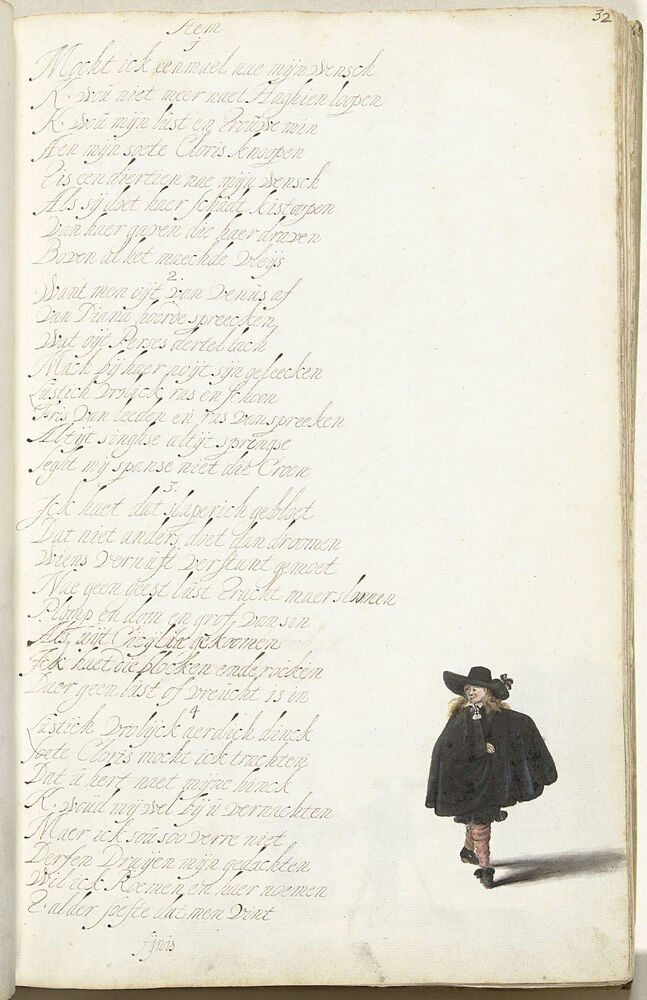 32
Stem
1
Mocht ick eenmael nae mijn wensch
K. wou niet meer naet Haghien loopen
K. wou mijn lust en trouwe min
Aen mijn soete Cloris knoopen
Tis een diertien nae mijn wensch
Als sij doet haer
Van haer gaven die haer draven
Boven al het maechde vleijs
2.
Want men oijt van Venus af
Van Diana hoorde spreecken
Wat oijt Perses dertel lach
Mach bij haer noijt sijn geleecken
Lustich vrolijck, ras en schoon
Fris van leeden en ras van spreeken
Altijt singhse altijt springse
Seght mij spanse niet die Croon
3.
Ick haet dat slaperich gebloet
Dat niet anders doet dan droomen
Wiens vernuft verstant gemoet
Nae geen geest lust tracht maer slumen
Plomp en dom en grof van sin
Als uijt gekoomen
Ick haet die blocken ende rocken
Daer geen lust of vreucht is in
4
Lustich vrolijck aerdich dinck
Soete Cloris mocht ick trachten
Dat u hert naet mijne hinck
K. woud mij wel bij u vernachten
Maer ick sou soo verre niet
Derfen dragen mijn gedachten
Wil ick Roemen en haer noemen
T. alder soeste dat men vint
fijnis